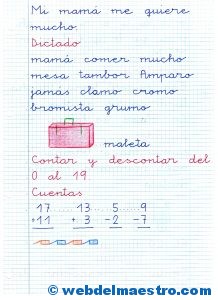 Mi mamá me quiere
mucho.
Dictado
mamá comer mucho
mesa tambor Amparo
jamás clamo cromo
bromista grumo
maleta
Contar y descontar del
0 al 19
Cuentas
17 13 5 9
+11 + 3 -2 -7
© webdelmaestro.com